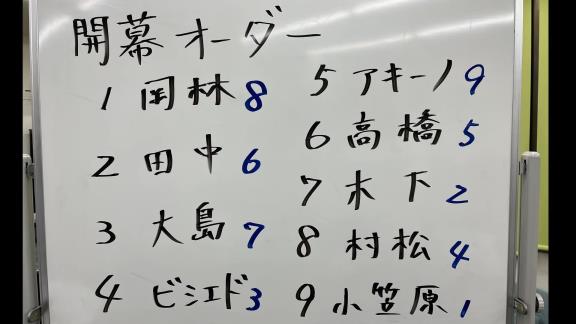 開幕オーダー
1 岡林 8
2 田中 6
3 大島 7
4 ビシエド 3
5 アキーノ 9
6 高橋 5
7 木下 2
8 村松 4
9 小笠原 1